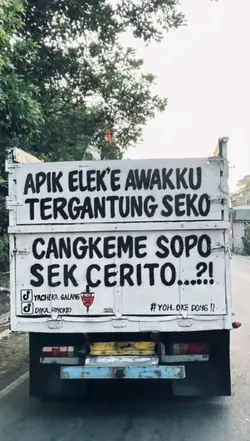 APIK ELEK'E AWAKKU
TERGANTUNG SEKO
CANGKEME SOPO
SEK CERITO...?!
YACHEKA_GALANG
#YOH..OKE DONG!!